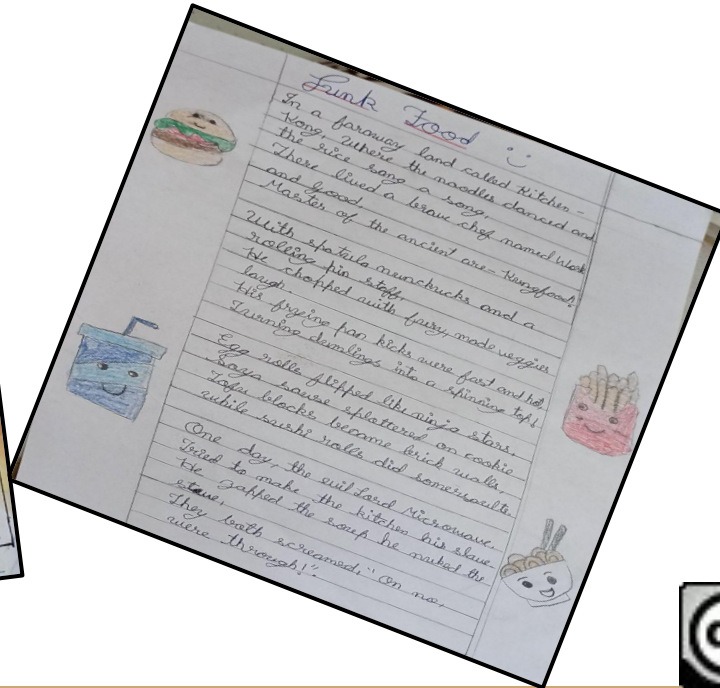 Junk Food
In a faraway land called Kitchen-
Kong, Where the noodles danced and
the rice sang a song,
There lived a brave chef named Wook
and food
Master of the ancient are - Kungfood!
With spatula nunchucks and a
rolling pin staff,
He chopped with fury, made veggies
laugh.
His frying pan kicks were fast and hot,
Turning dumlings into a spinning top!
Egg rolls flipped like ninja stars,
Soya sauce splattered on cookie
Tofu blocks became brick walls,
while sushi rolls did somersaults.
One day, the evil Lord Microwave,
Tried to make the kitchen his slave
He zapped the soup he nuked the
stove,
They both screamed, "Oh no,
were through!".